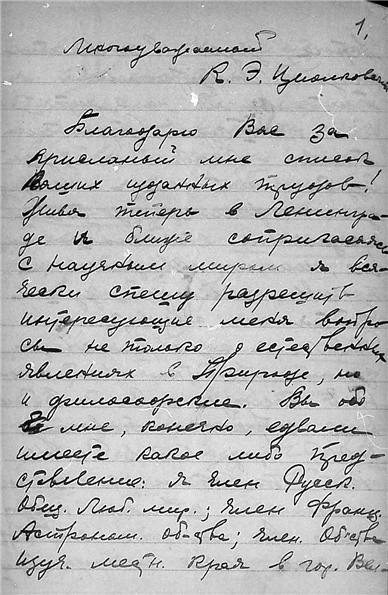 1.
Многоуважаемый
К. Э. Циолковский
Благодарю Вас за
присланый мне список
Ваших изданных трудов!
Живя теперь в Ленингра-
де и ближе соприкасаясь
с научным миром я вся-
чески спешу разрешить
интересующие меня вопро-
сы не только о естественных
явлениях в Природе, но
и философские. Вы обо
мне, конечно, едвали
имеете какое либо пред-
ставление: я член Русск.
Общ. Люб. мир.; член Франц.
Астроном. об-ства; член. Общества
изуч. местн. края в гор. Вел-